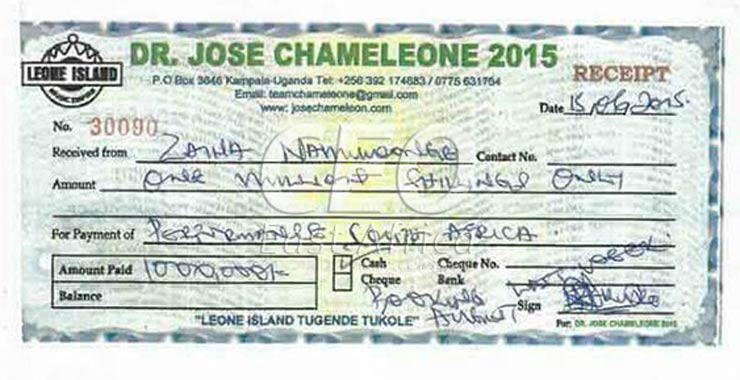 DR. JOSE CHAMELEONE 2015
LEONE ISLAND
MUSIC EMPIRE
P.O Box 3646 Kampala-Uganda Tel: +256 392 174683 / 0775 631764
Email: teamchameleone@gmail.com
www: josechameleon.com
RECEIPT
Date 15/09/2015
No. 30090
Received from Zaina Contact No.
Amount One Million Shillings Only
For Payment of Performance South Africa
Amount Paid 1000,000/= Cash Cheque No.
Cheque Bank
Balance Booking Sign
"LEONE ISLAND TUGENDE TUKOLE"
For: DR. JOSE CHAMELEONE 2015
CEO